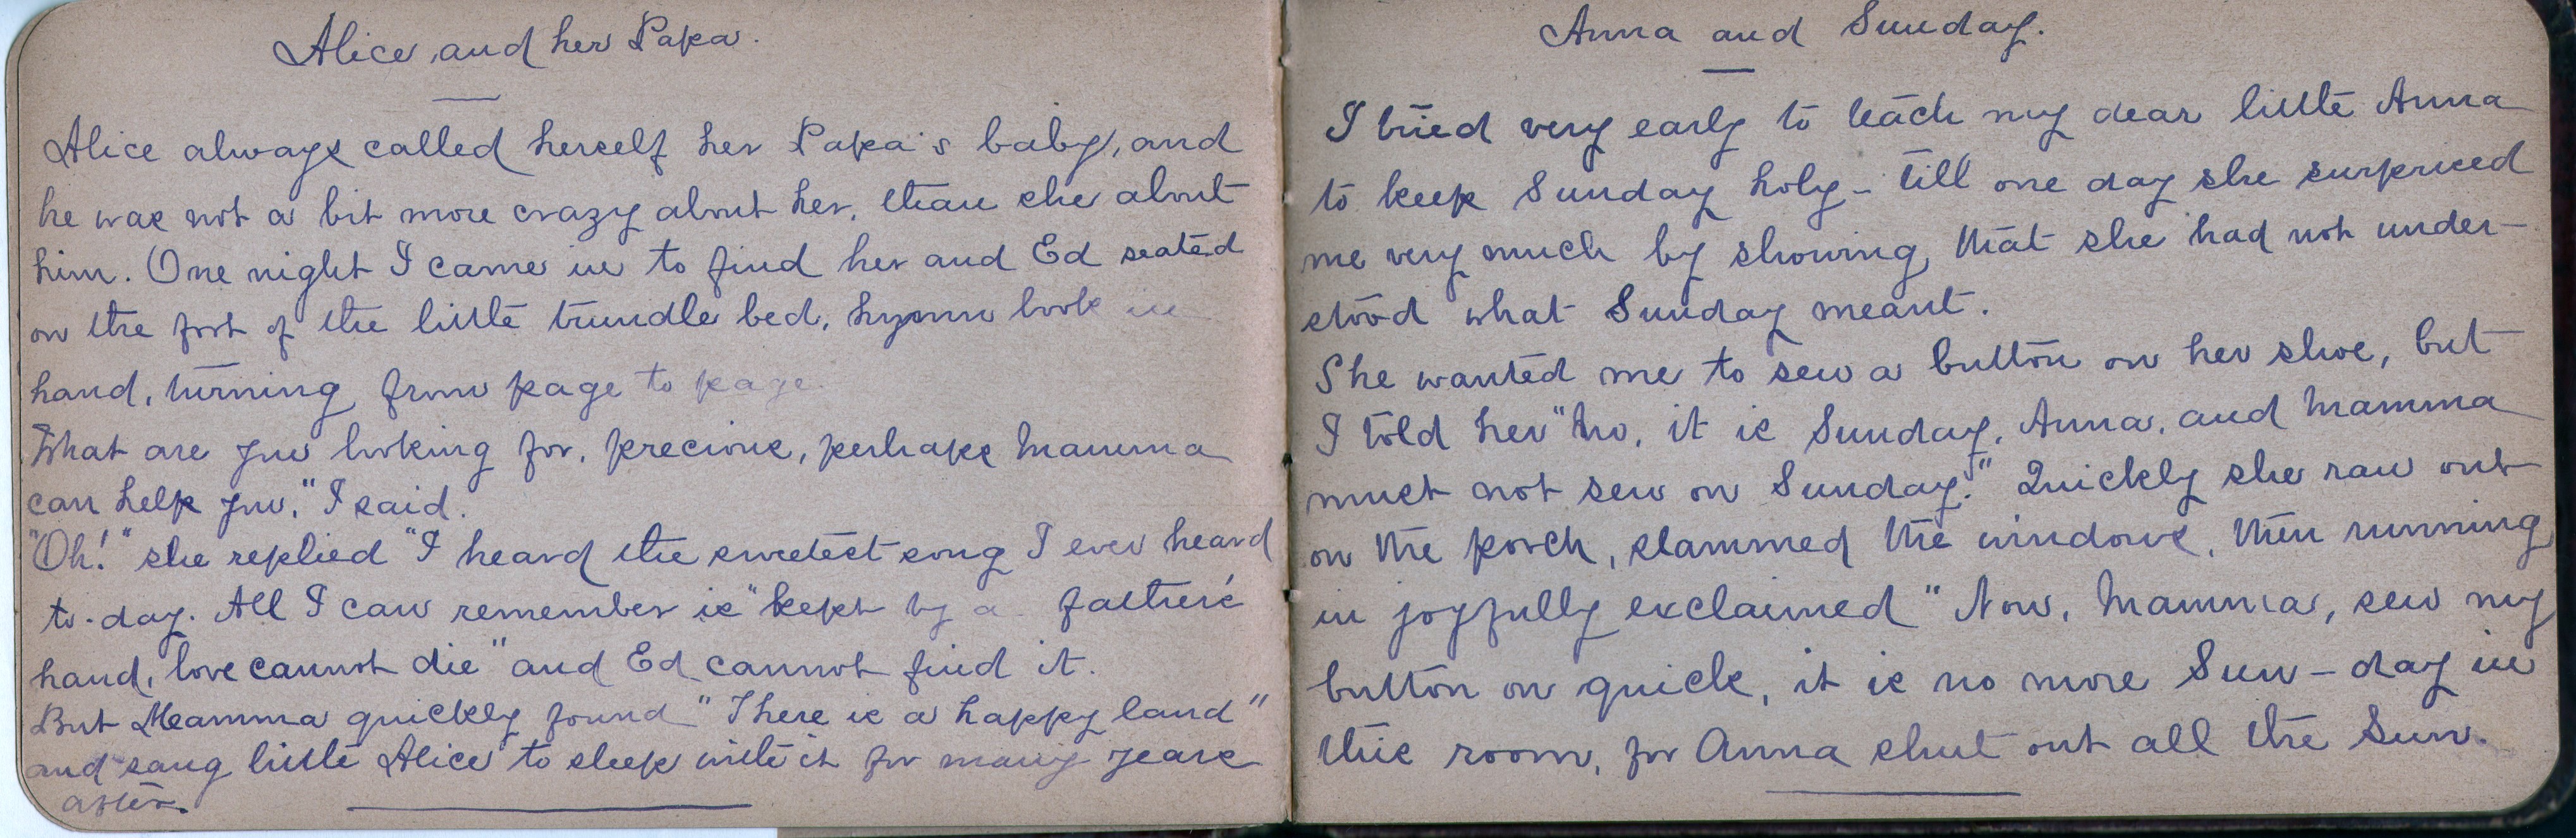 Alice and her Papa.
Alice always called herself her Papa's baby, and
he was not a bit more crazy about her, than she about
him. One night I came in to find her and Ed seated
on the foot of the little trundle bed, hymn book in
hand, turning from page to page.
What are you looking for, precious, perhaps Mamma
can help you," I said.
"Oh!" she replied "I heard the sweetest song I ever heard
to-day. All I can remember is "kept by a father's
hand, love cannot die" and Ed cannot find it.
But Mamma quickly found "There is a happy land"
and sang little Alice to sleep with it for many years
after.
Anna and Sunday.
I tried very early to teach my dear little Anna
to keep Sunday holy - till one day she surprised
me very much by showing, that she had not under-
stood what Sunday meant.
She wanted me to sew a button on her shoe, but
I told her "No, it is Sunday, Anna, and Mamma
must not sew on Sunday." Quickly she ran out
on the porch, slammed the windows, then running
in joyfully exclaimed "Now, Mamma, sew my
button on quick, it is no more Sun-day in
this room, for Anna shut out all the Sun.